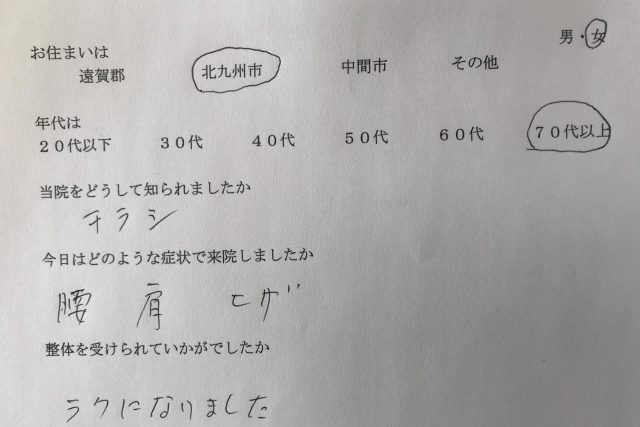 男・女
お住まいは
遠賀郡 北九州市 中間市 その他
年代は
２０代以下 ３０代 ４０代 ５０代 ６０代 ７０代以上
当院をどうして知られましたか
チラシ
今日はどのような症状で来院しましたか
腰 肩 ヒザ
整体を受けられていかがでしたか
ラクになりました